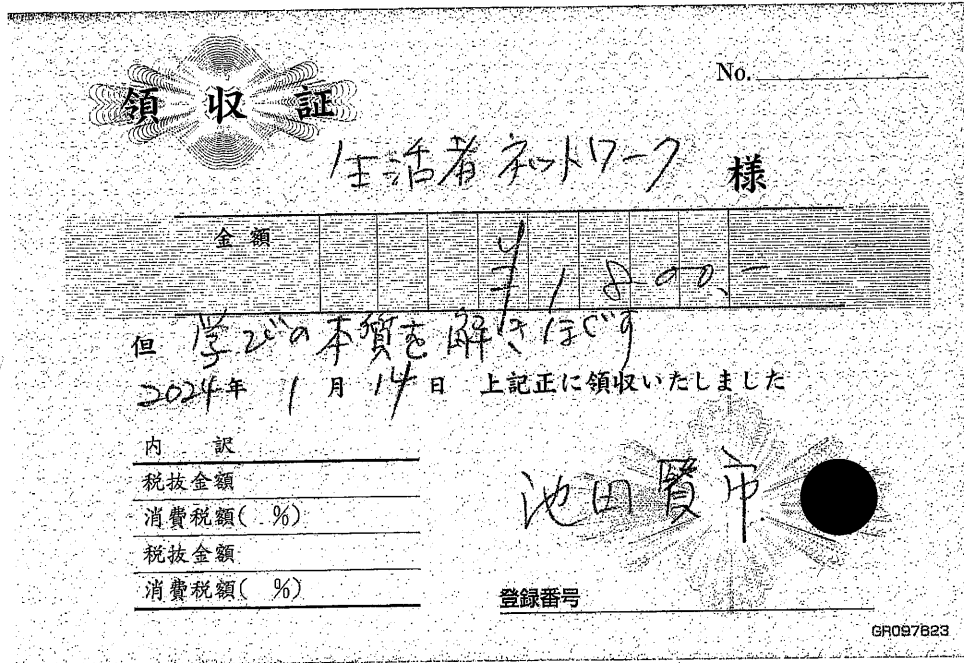 領収証
No.
生活者ネットワーク 様
金額 ¥1800.-
但 学びの本質を解きほぐす
2024年 1月 14日 上記正に領収いたしました
内 訳
税抜金額
消費税額( %)
税抜金額
消費税額( %)
池田賢市
登録番号
GR097823